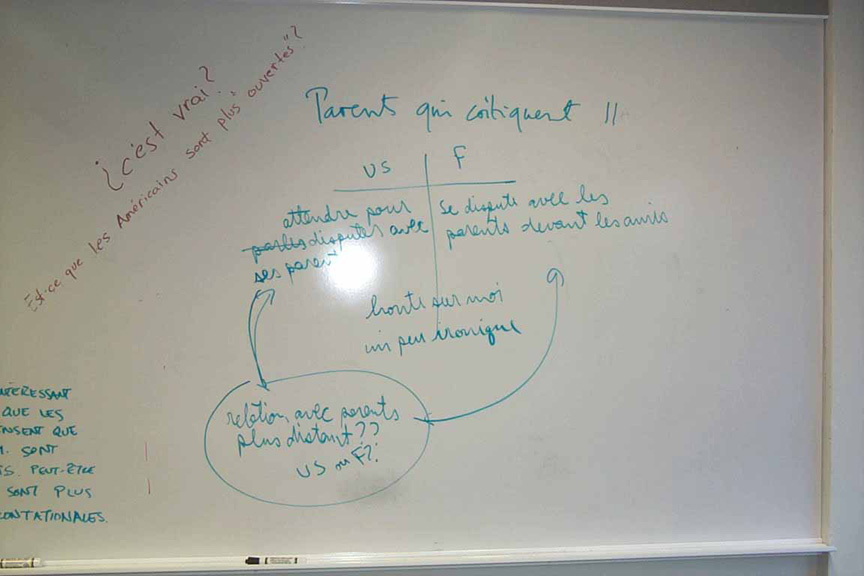 ¿c'est vrai?
Est-ce que les Américains sont plus "ouvertes"?
Parents qui critiquent !!
US F
attendre pour
parles disputer avec
ses parent
se dispute avec les
parents devant les amis
honte sur moi
un peu ironique
relation avec parents
plus distant??
US ou F?
NTÉRESSANT
QUE LES
NSENT QUE
SONT
PEUT-ÊTRE
SONT PLUS
ONTATIONALES.